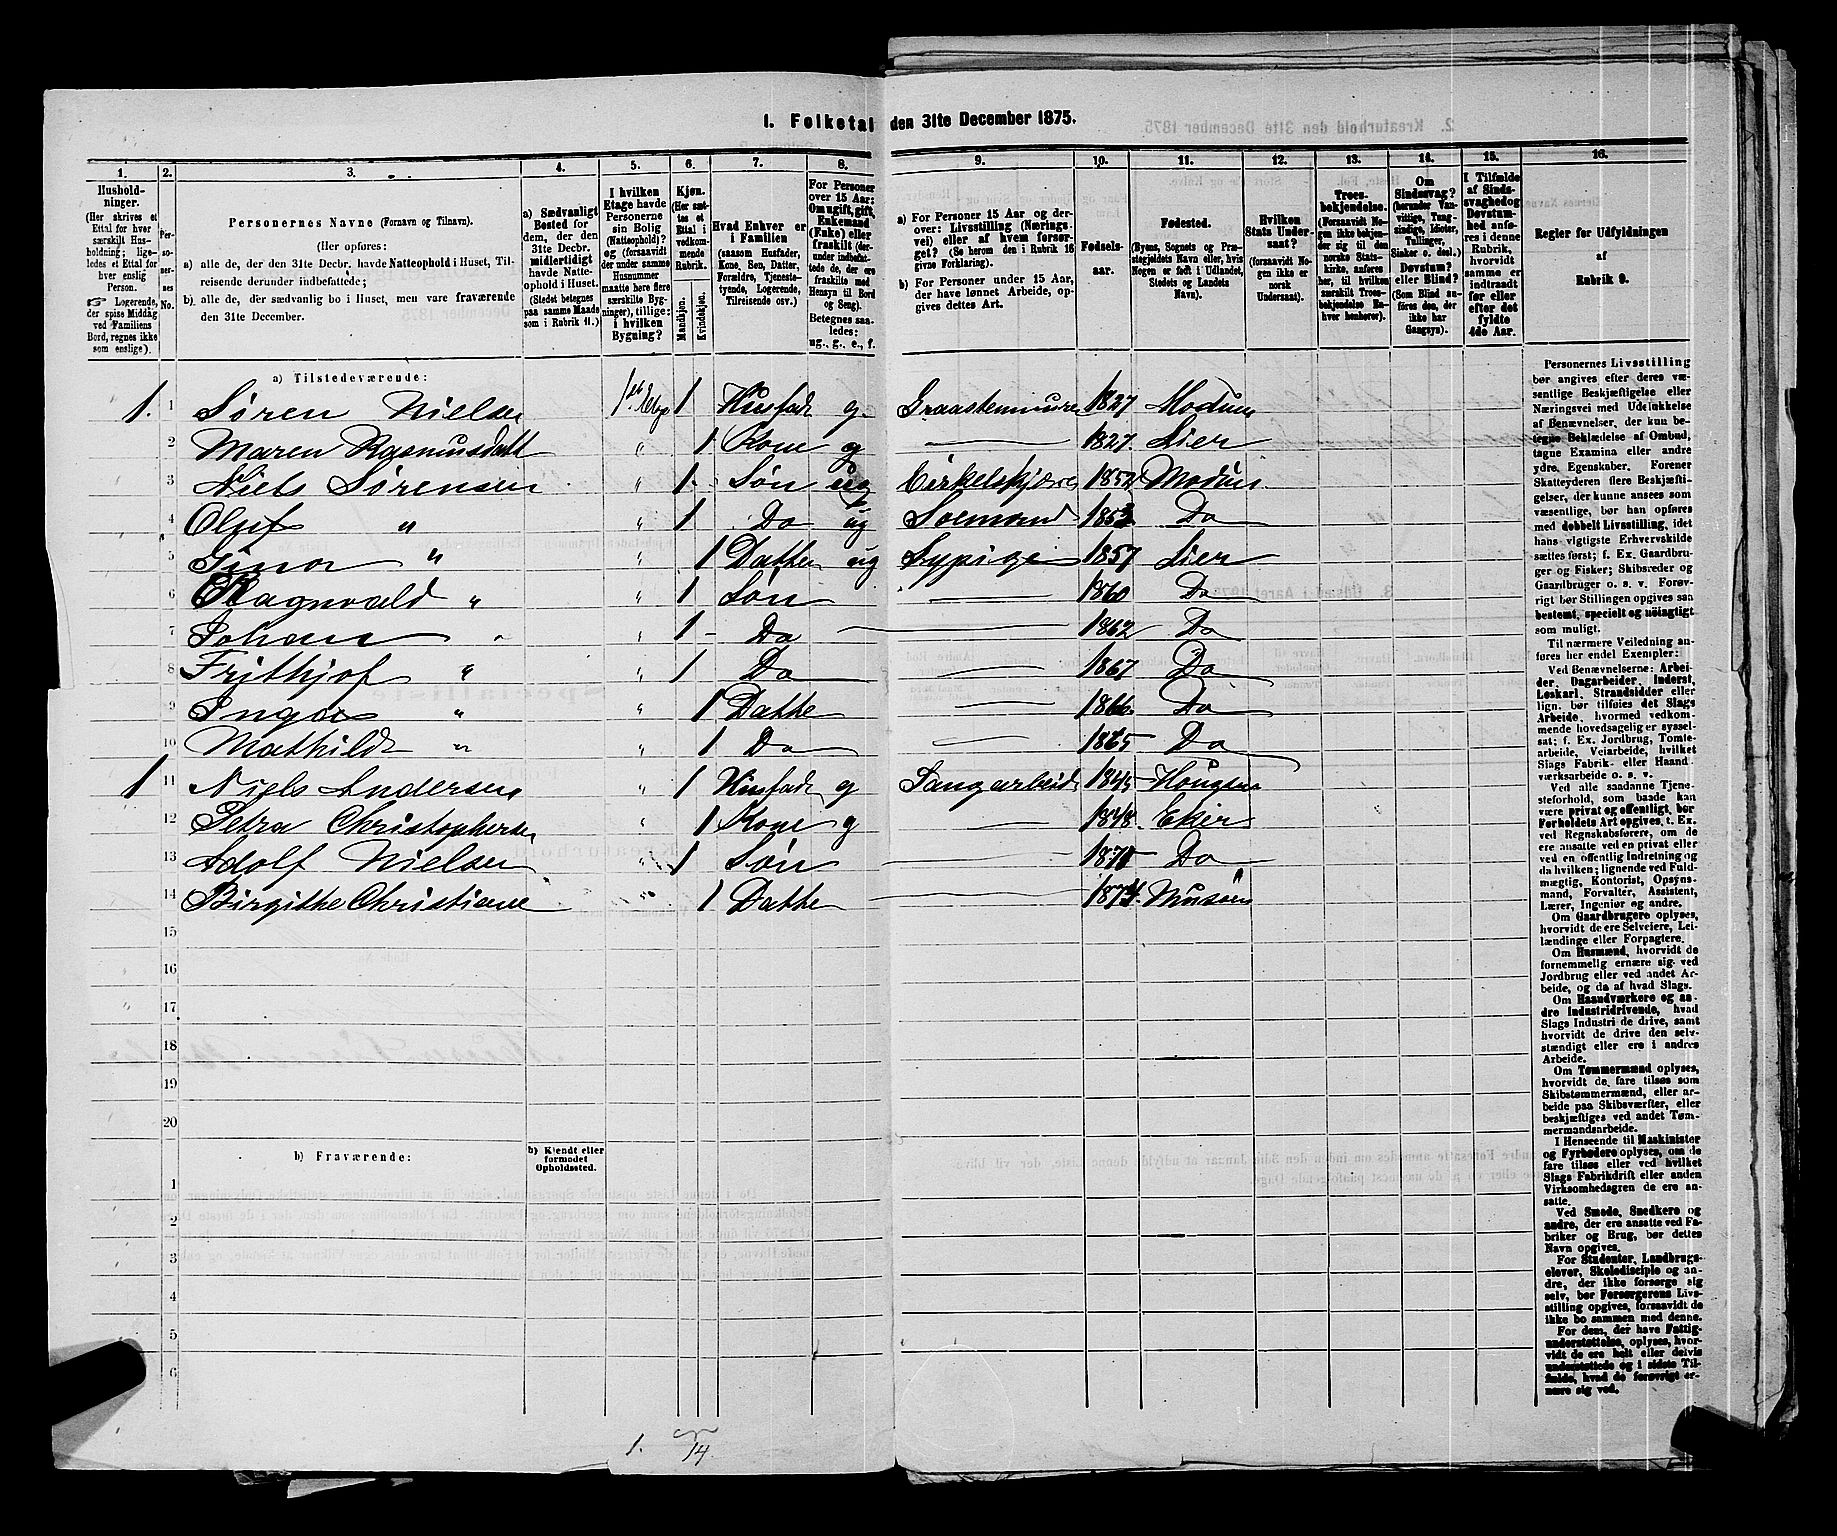 1. Folketal den 31te December 1875.
1. 2. 3. 4. 5. 6. 7. 8. 9. 10. 11. 12. 13. 14. 15. 16.
Hushold-
ninger.
(Her skrives et
Ettal for hver
særskilt Hus-
holdning; lige-
ledes et Ettal for
hver enslig
Person.
☞ Logerende,
der spise Middag
ved Familiens
Bord, regnes ikke
som enslige).
Per-
so-
ner-
nes
No.
Personernes Navne (Fornavn og Tilnavn).
(Her opføres:
a) alle de, der den 31te Decbr. havde Natteophold i Huset, Til-
reisende derunder indbefattede;
b) alle de, der sædvanlig bo i Huset, men vare fraværende
den 31te December.
a) Sædvanligt
Bosted for
dem, der den
31te Decbr.
midlertidigt
havde Natte-
ophold i Huset.
(Stedet betegnes
paa samme Maade
som i Rubrik 11.)
I hvilken
Etage havde
Personerne
sin Bolig
(Natteophold)?
(forsaavidt
der under samme
Husnummer
maatte høre flere
særskilte Byg-
ninger), tillige:
i hvilken
Bygning?
Kjøn.
(Her sæt-
tes et
Ettal i
vedkom-
mende
Rubrik.
Mandkjøn.
Kvindekjøn.
Hvad Enhver er
i Familien
(saasom Husfader,
Kone, Søn, Datter,
Forældre, Tjeneste-
tyende, Logerende,
Tilreisende osv.)
For Personer
over 15 Aar:
Om ugift, gift,
Enkemand
(Enke) eller
fraskilt (der-
under indbefat-
tede de, der ere
fraskilte med
Hensyn til Bord
og Seng).
Betegnes saa-
ledes:
ug., g., e., f.
a) For Personer 15 Aar og der-
over: Livsstilling (Nærings-
vei) eller af hvem forsør-
get? (Se herom den i Rubrik 16
givne Forklaring).
b) For Personer under 15 Aar,
der have lønnet Arbeide, op-
gives dettes Art.
Fødsels-
aar.
Fødested.
(Byens, Sognets og Præ-
stegjeldets Navn eller, hvis
Nogen er født i Udlandet,
Stedets og Landets
Navn).
Hvilken
Stats Under-
saat?
(forsaavidt No-
gen ikke er
norsk
Undersaat).
Troes-
bekjendelse.
(Forsaavidt No-
gen ikke bekjen-
der sig til den
norske Stats-
kirke, anføres
her, til hvilken
særskilt Troes-
bekjendelse En-
hver henhører).
Om
Sindssvag?
(herunder Van-
vittige, Tung-
sindige, Idioter,
Tullinger,
Sinker o. desl.)
Døvstum?
eller Blind?
(Som Blind an-
føres den, der
ikke har
Gangsyn).
I Tilfælde
af Sinds-
svaghed og
Døvstum-
hed anfø-
res i denne
Rubrik,
hvorvidt
samme er
indtraadt
før eller
efter det
fyldte
4de Aar.
Regler for Udfyldningen
af
Rubrik 9.
a) Tilstedeværende:
1. 1 Søren Nielsen 1st Etage 1 Husfader g. Graastensmurer 1827 Modum
2 Maren Rasmusdatt " 1 Kone g 1827. Lier
3 Niels Sørensen " 1 Søn ug 1852 Modum
4 Oluf " " 1 Do ug Sømand 1853 Do
5 Gina " " 1 Datter ug Sypige 1857 Lier
6 Ragnvald " " 1 Søn 1860 Do
7 Johan " " 1 Do 1862 Do
8 Frithjof " " 1 Do 1867 Do
9 Inga " " 1 Datter 1866. Do
10 Mathilde " " 1 Do 1865 Do
1 11 Niels Andersen 1 Husfader g Sangarbeider 1845 Hougsun
12 Petra Christophersen " 1 Kone g 1848. Eker
13 Adolf Nielsen " 1 Søn Do
14 Birgithe Christiane " 1 Datter 1874.
15
16
17
18
19
20
b) Fraværende:
b) Kjendt eller
formodet
Opholdssted.
1
2
3
4
5
6
1. 14.
Personernes Livsstilling
bør angives efter deres væ-
sentlige Beskjæftigelse eller
Næringsvei med Udelukkelse
af Benævnelser, der kun be-
tegne Beklædelse af Ombud,
tagne Examina eller andre
ydre Egenskaber. Forener
Skatteyderen flere Beskjæfti-
gelser, der kunne ansees som
væsentlige, bør han opføres
med dobbelt Livsstilling, idet
hans vigtigste Erhvervskilde
sættes først; f. Ex. Gaardbru-
ger og Fisker; Skibsreder og
Gaardbruger o. s. v. Forøv-
rigt bør Stillingen opgives saa
bestemt, specielt og nøiagtigt
som muligt.
Til nærmere Veiledning an-
føres her endel Exempler:
Ved Benævnelserne: Arbei-
der, Dagarbeider, Inderst,
Løskarl, Strandsidder eller
lign. bør tilføies det Slags
Arbeide, hvormed vedkom-
mende hovedsagelig er syssel-
sat; f. Ex. Jordbrug, Tomte-
arbeide, Veiarbeide, hvilket
Slags Fabrik- eller Haand
værksarbeide o. s. v.
Ved alle saadanne Tjene-
steforhold, som baade kan
være privat og offentligt, bør
Forholdets Art opgives, t. Ex.
ved Regnskabsførere, om de
ere ansatte ved en privat eller
ved en offentlig Indretning og
da hvilken; lignende ved Fuld-
mægtig, Kontorist, Opsyns-
mand, Forvalter, Assistent,
Lærer, Ingeniør og andre.
Om Gaardbrugere oplyses,
hvorvidt de ere Selveiere, Lei-
lændinge eller Forpagtere.
Om Husmænd, hvorvidt de
fornemmelig ernære sig ved
Jordbrug eller ved andet Ar-
beide, og da af hvad Slags.
Om Haandværkere og an-
dre Industridrivende, hvad
Slags Industri de drive, samt
hvorvidt de drive den selv-
stændigt eller ere i andres
Arbeide.
Om Tømmermænd oplyses,
hvorvidt de fare tilsøs som
Skibstømmermænd, eller ar-
beide paa Skibsværfter, eller
beskjæftiges ved andet Tøm-
mermandsarbeide.
I Henseende til Maskinister
og Fyrbødere oplyses, om de
fare tilsøs eller ved hvilket
Slags Fabrikdrift eller anden
Virksomhedsgren de ere an-
satte.
Ved Smede, Snedkere og
andre, der ere ansatte ved Fa-
briker og Brug, bør dettes
Navn opgives.
For Studenter, Landbrugs-
elever, Skoledisciple og an-
dre, der ikke forsørge sig
selv, bør Forsørgerens Livs-
stilling opgives, forsaavidt de
ikke bo sammen med denne.
For dem, der have Fattig-
understøttelse, oplyses, hvor-
vidt de ere helt eller delvis
understøttede og i sidste Til-
fælde, hvad de forøvrigt er-
nære sig ved.